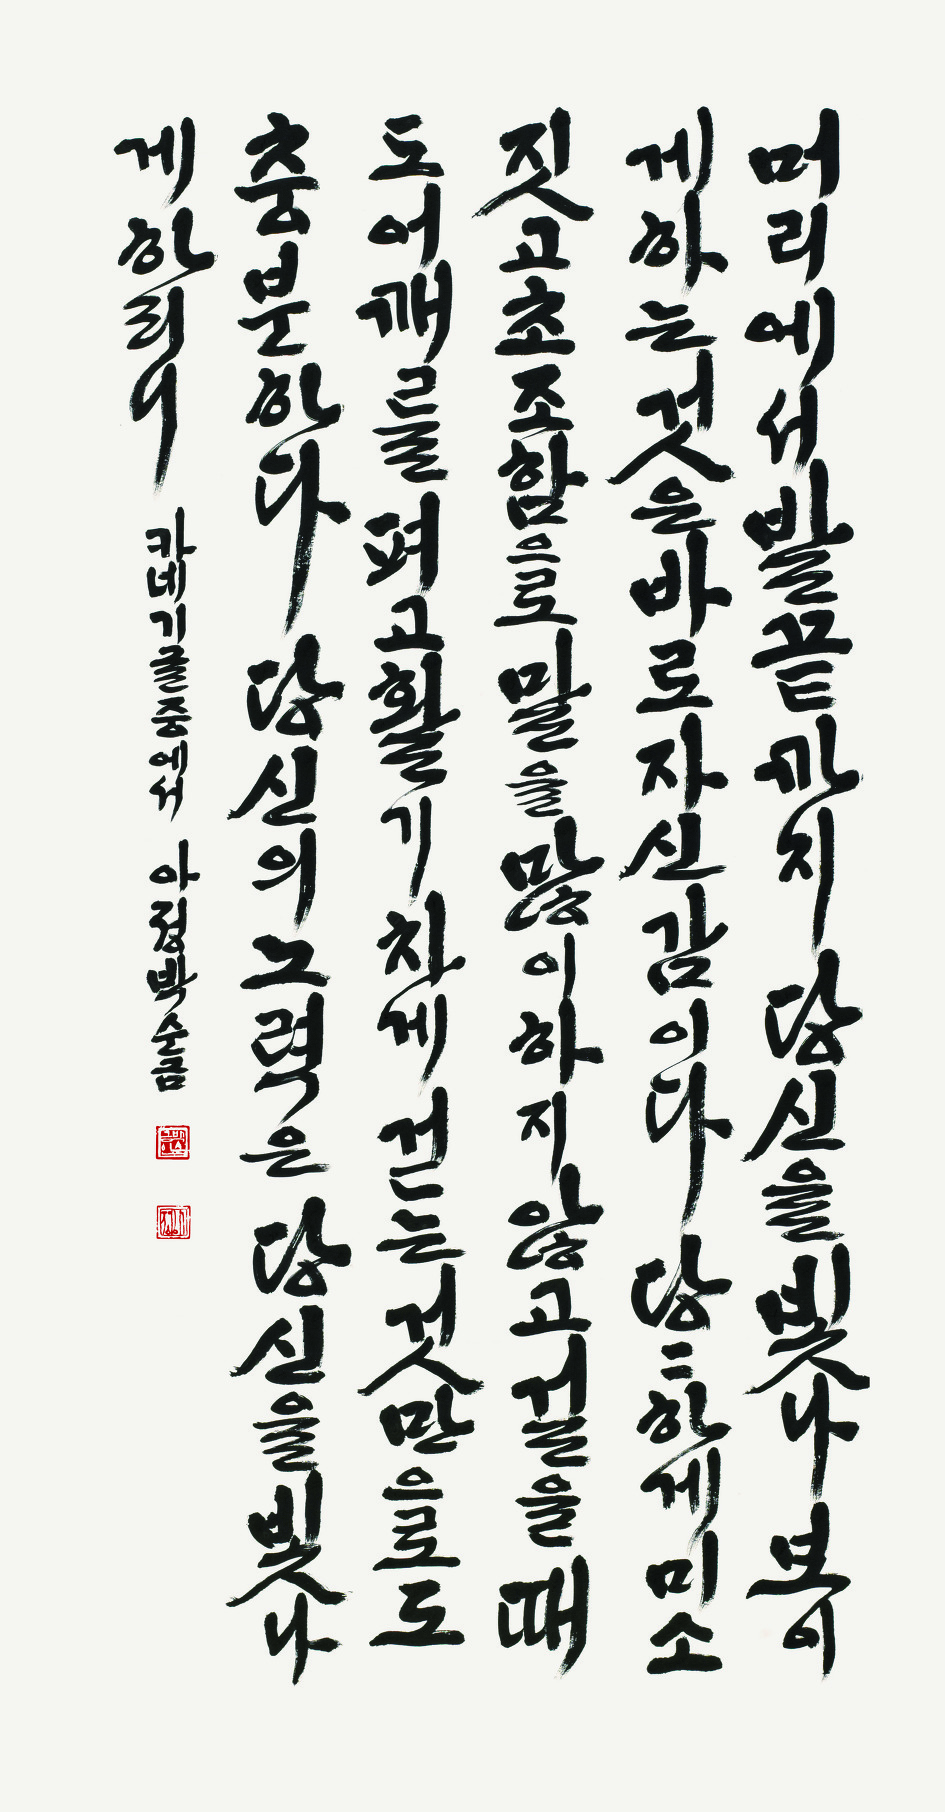 머리에서발끝까지당신을빛나보이
게하는것은바로자신감이다당당하게미소
짓고초조함으로말을많이하지않고걸을때
도어깨를펴고활기차게걷는것만으로도
충분하다당신의노력은당신을빛나
게하리니
카네기글중에서 아정박순금